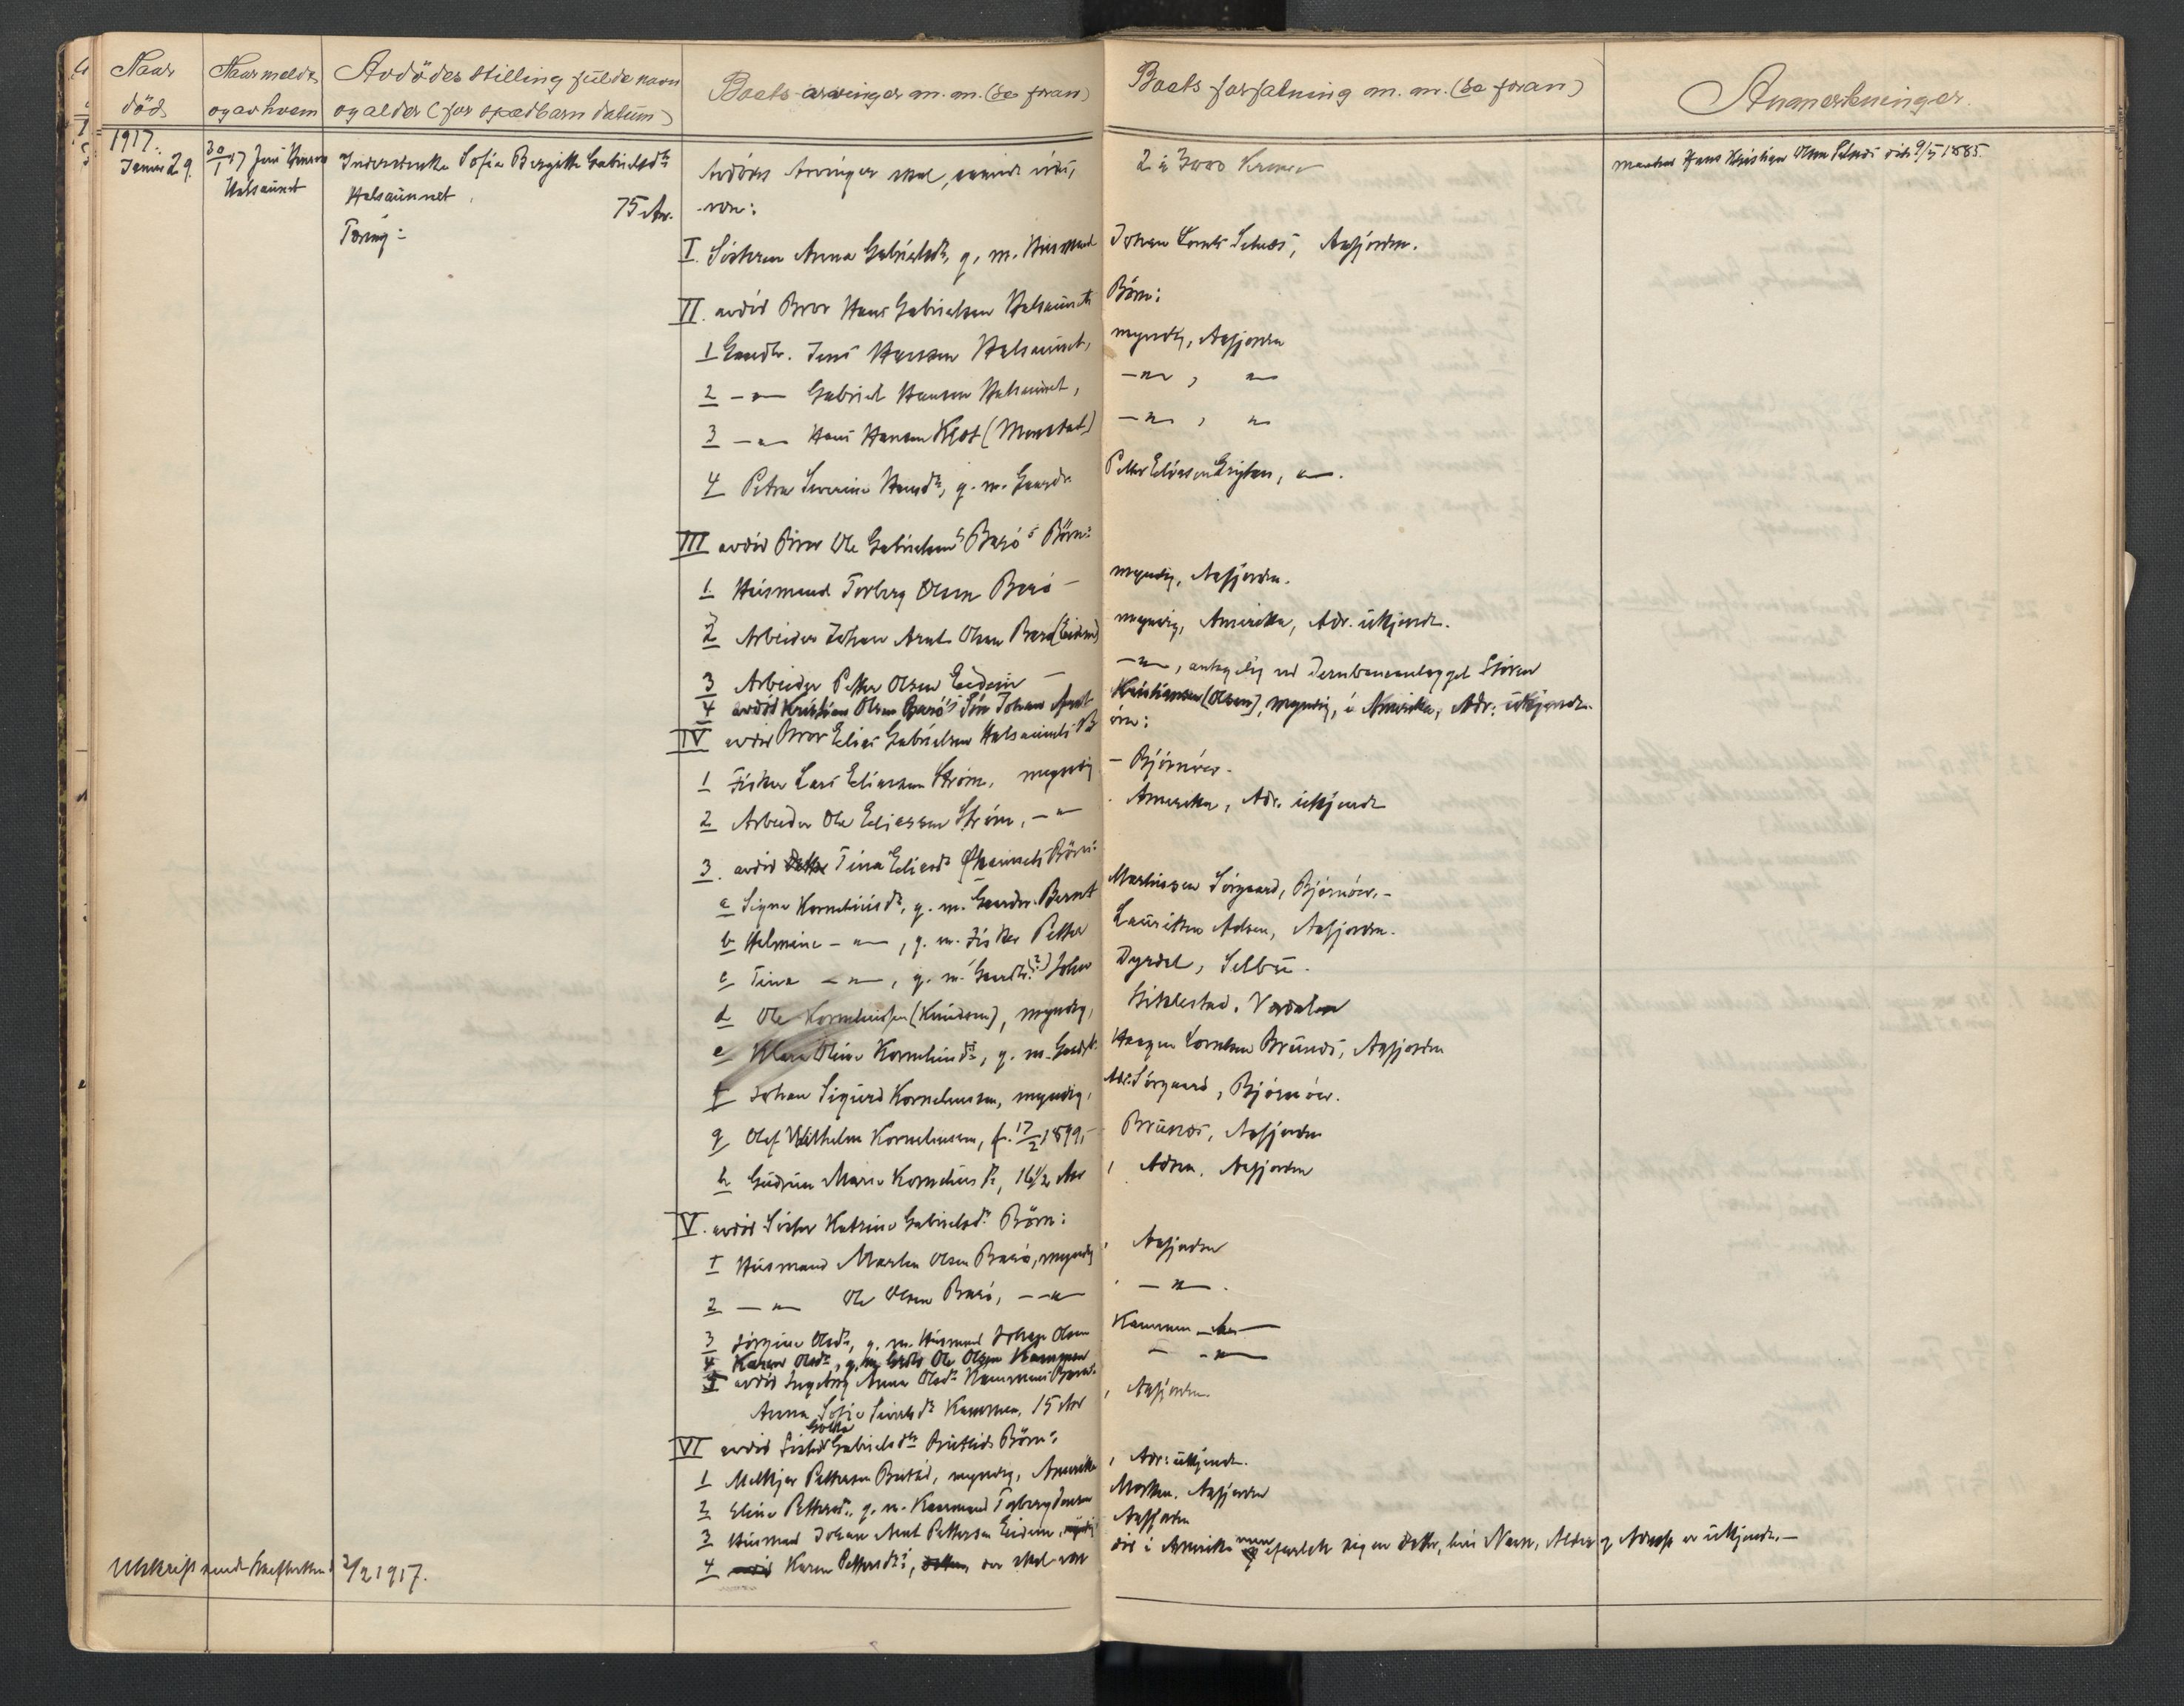 Naar død
Naar meldt og av hvem
Avdödes stilling fulde navn og alder (for spædbarn datum)
Boets arvinger m.m. (se foran)
Boets forfatning m.m. (se foran)
Anmerkninger.
1917.
Januar 29.
30/1 17 Jens Hansen
Halsaunet
Inderstenke Sofie Bergitte Gabrielsdtr
Halsaunet
75 Aar.
Tæring:
Avdödes Arvinger skal
være:
2 à 3000 Kroner
Manden Hans Kristian Olsen Selnes död 9/5 1885.
I. Sösteren Anna Gabrielsdtr, g. m. Husmand Johan Selnes, Aafjorden.
II. avdöd Bror Hans Gabrielsen Halsaunets Börn:
1 Gaardbr. Jens Hansen Halsaunet, myndig, Aafjorden
2 —"— Gabriel Hansen Halsaunet, —"—, "
3 —"— Hans Hansen (Monstad) —"—, "
4 Petra Severine Hansdtr, g. m. Gaardbr. Petter Eliasen, "—.
III avdöd Bror Ole Gabrielsens Barö's Börn:
1 Husmand Torberg Olsen Barö — myndig, Aafjorden.
2 Arbeider Johan Arnt Olsen Barö (Eidem) myndig, Amerika, Adr. ukjendt.
3 Arbeider Petter Olsen Eidem — —"—, antagelig ved Jernbaneanlægget Stören
4 avdöd Kristian Olsen Barö's Sön Johan Arnt Kristiansen (Olsen), myndig, i Amerika, Adr. ukjendt.
IV avdöd Bror Elias Gabrielsen Halsaunets Börn:
1 Fisker Lars Eliassen Ström, myndig — Björnöer.
2 Arbeider Ole Eliassen Ström, —"— Amerika, Adr. ukjendt
3. avdöd Tina Eliasdtr Börn:
a Signe Korneliusdtr, g. m. Gaardbr. Bernt Martinsen Sörgaard, Björnöer. —
b Halmine —"—, g. m. Fisker Petter Lauritsen Adsen, Aafjorden.
c Tina —"—, g. m. Gaardbr. (?) Johan Dyrdal, Selbu.
d Ole Korneliussen (Knudsen), myndig, Stiklestad, Verdalen
e Klara Oline Korneliusdtr, g. m. Gaardbr. Haagen Brunes, Aafjorden
f Johan Sigurd Korneliussen, myndig, Adr. Sörgaard, Björnöer.
g Olaf Wilhelm Korneliussen, f. 17/2 1899, — Brunes, Aafjorden
h Gudrun Marie Korneliusdtr, 16 1/2 Aar, Adsen, Aafjorden
V. avdöd Söster Katrine Gabrielsdtr. Börn:
1 Husmand Martin Olsen Barö, myndig, Aafjorden
2 —"— Ole Olsen Barö, —"— —"—.
3 Jörgine Olsdtr, g. m. Husmand Johan Olsen Kammen —"—
4 Karen Olsdtr, g. m. Ole Olsen Kammen — —"—
5 avdöd Ingeborg Anna Olsdtr Kammens Barn:
Anna Sofie Kammen, 15 Aar, Aafjorden.
VI avdöd Söster Gabrielsdtr Börn:
1 Melkjor Pettersen, myndig, Amerika, Adr. ukjendt.
2 Eline Pettersdtr, g. m. Torberg Jensen Morken, Aafjorden
3 Husmand Johan Arnt Pettersen Eidem, Aafjorden
4 Karen Pettersdtr, der skal være död i Amerika men efterlatt sig en Datter, hvis Navn, Alder og Adresse er ukjendt. —
Utskrift sendt Skifteretten 2/2 1917.